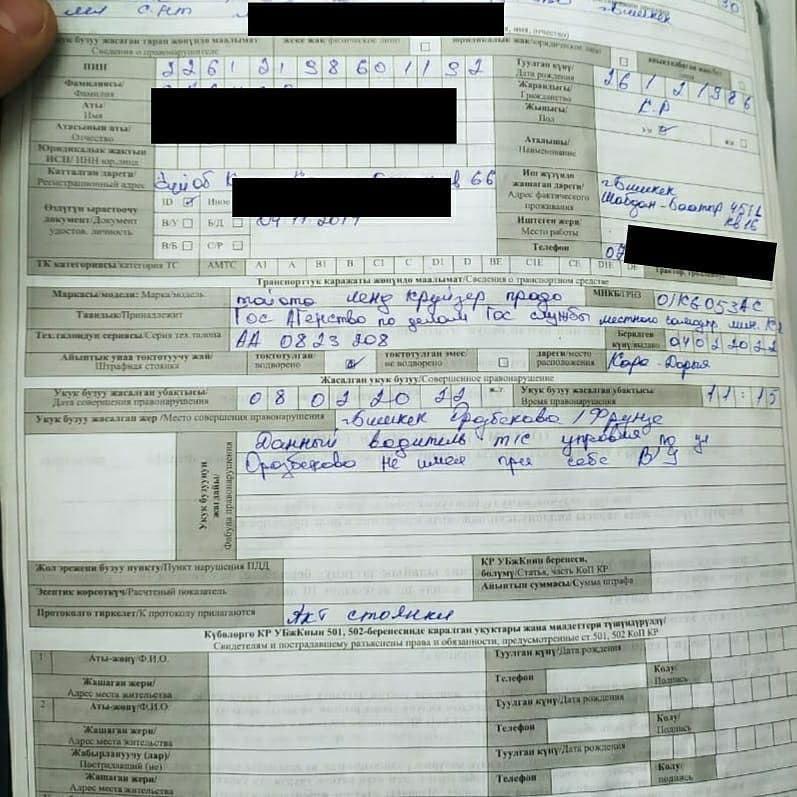 г.Бишкек
30
Укук бузуу жасаган тарап жөнүндө маалымат/ жеке жак/физическое лицо юридикалык жак/юридическое лицо
Сведения о правонарушителе
ПИН 22612198601192 Туулган күнү/ 26 12 1986
Дата рождения
Фамилиясы/ Жарандыгы/ К.Р
Фамилия Гражданство
Аты/ Жынысы/
Имя Пол
Атасынын аты/
Отчество
Юридикалык жактын Аталышы/
ИСН/ ИНН юр.лица Наименование
Катталган дареги/ 66
Регистрационный адрес
Иш жүзүндө г.Бишкек
жашаган дареги/ Шабдан-Баатыр
Адрес фактического кв 16
проживания
Өздүгүн ырастоочу ID Иное
документ/Документ В/У Б/Д 04 11 2017
удостов. личность В/Б С/Р
Иштеген жери/
Место работы
Телефон 07
ТК категориясы/категория ТС АМТС A1 A B1 B C1 C D1 D BE C1E CE D1E DE
Транспорттук каражаты жөнүндө маалымат/Сведения о транспортном средстве
Маркасы/модели: Марка/модель тойота ленд крузер прадо МНКБ/ГРНЗ 01КG053АС
Таандык/Принадлежит Гос Агенство по делам Гос службы местного самоупр. мин. КР
Тех.талондун сериясы/Серия тех.талона АА 0823208 Берилген күнү/выдано 04022022
Айыптык унаа токтотуучу жай/ токтотулган/ токтотулган эмес/ дареги/место Кара-Дарыя
Штрафная стоянка водворено не водворено расположения
Жасалган укук бузуу/Совершенное правонарушение
Укук бузуу жасалган убактысы/ 08 02 2022 ж.г. Укук бузуу жасалган убактысы/ 11:15
Дата совершения правонарушения Время правонарушения
Укук бузуу жасалган жер /Место совершения правонарушения г.Бишкек Орозбекова / Фрунзе
Укук бузуунун жагдайы/
Фабула правонарушения
Данный водитель т/с управляя по ул
Орозбекова не имея при себе В/У
Жол эрежени бузуу пункту/Пункт нарушения ПДД
КР УБжКнин беренеси,
бөлүмү/Статья, часть КоП КР
Эсептик көрсөткүч/Расчетный показатель Айыптын суммасы/Сумма штрафа
Протоколго тиркелет/К протоколу прилагаются Акт стоянки
Күбөлөргө КР УБжКнын 501, 502-беренесинде каралган укуктары жана милдеттери түшүндүрүлдү/
Свидетелям и пострадавшему разъяснены права и обязанности, предусмотренные ст.501, 502 КоП КР
1 Аты-жөнү/Ф.И.О. Туулган күнү/Дата рождения
Жашаган жери/ Телефон Колу/
Адрес места жительства Подпись
2 Аты-жөнү/Ф.И.О. Туулган күнү/Дата рождения
Жашаган жери/ Телефон Колу/
Адрес места жительства Подпись
Жабырлануучу (лар)/ Туулган күнү/Дата рождения
Пострадавший (не)
Жашаган жери/ Телефон Колу/
Адрес места жительства подпись